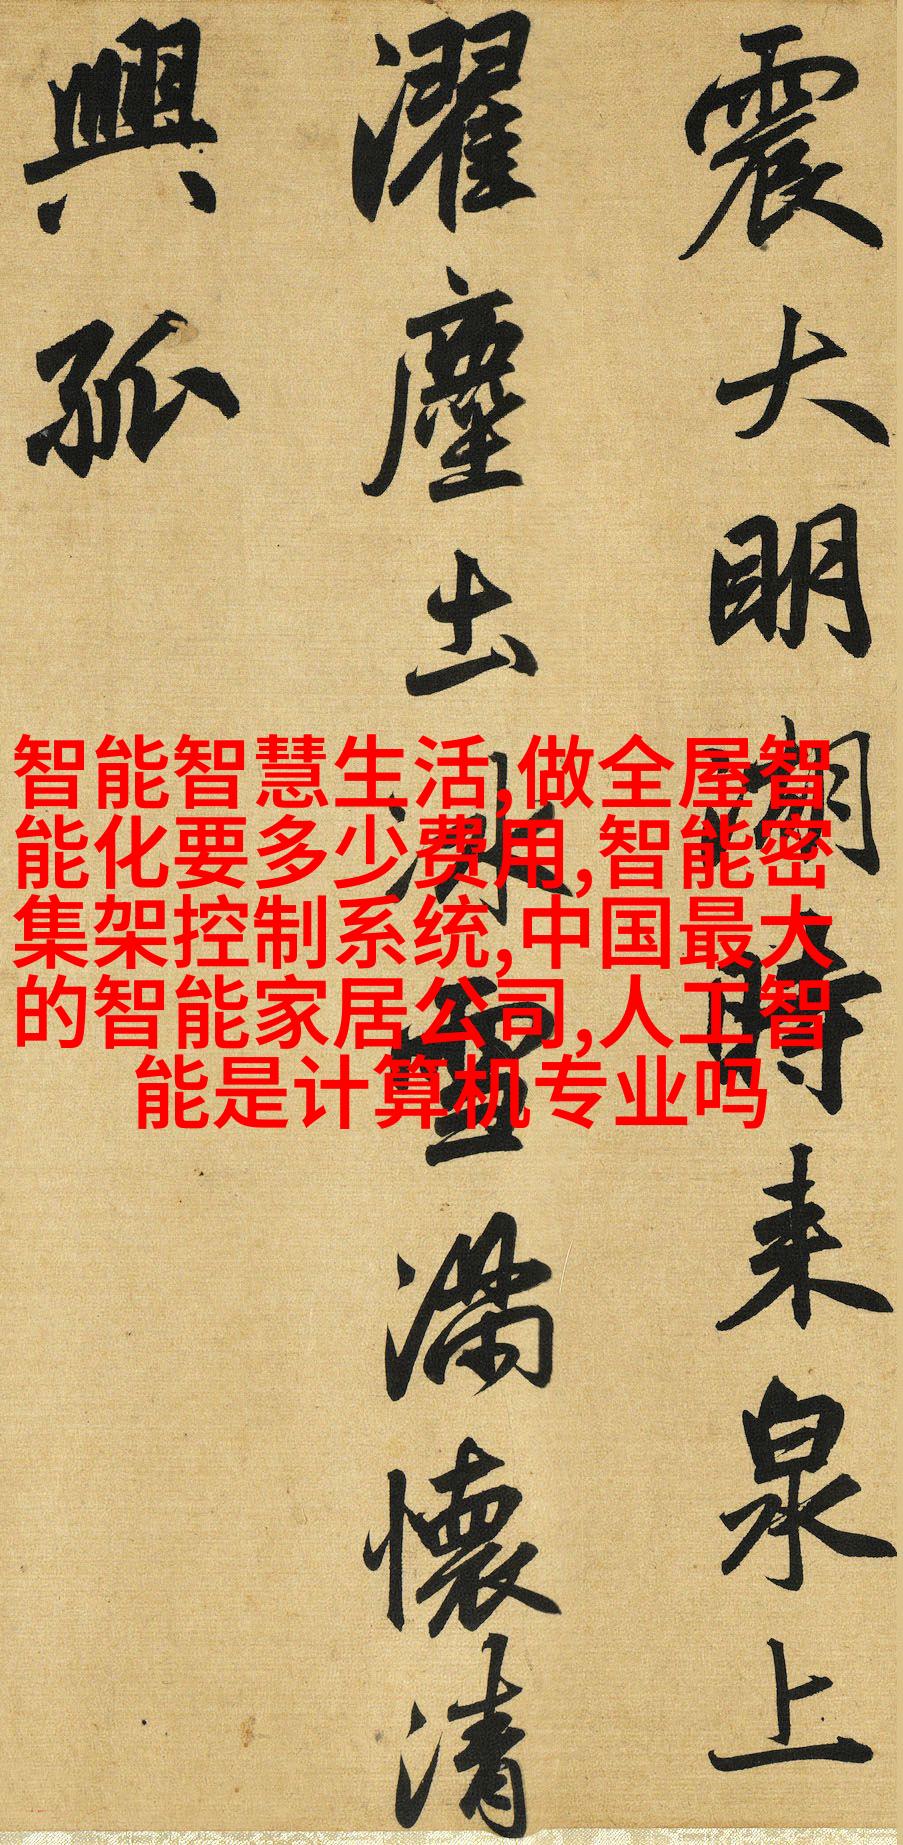 震大明湖時来泉上
濯塵土冰雪滿懷清
興孤
智能智慧生活,做全屋智
能化要多少费用,智能密
集架控制系统,中国最大
的智能家居公司,人工智
能是计算机专业吗